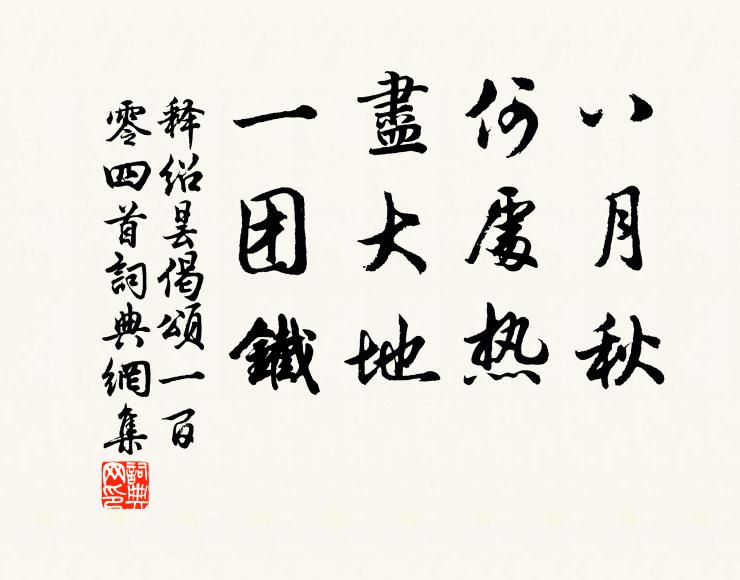 八月秋
何處热
盡大地
一团鐵
释绍昙偈頌一百
零四首詞典網集
詞典网印